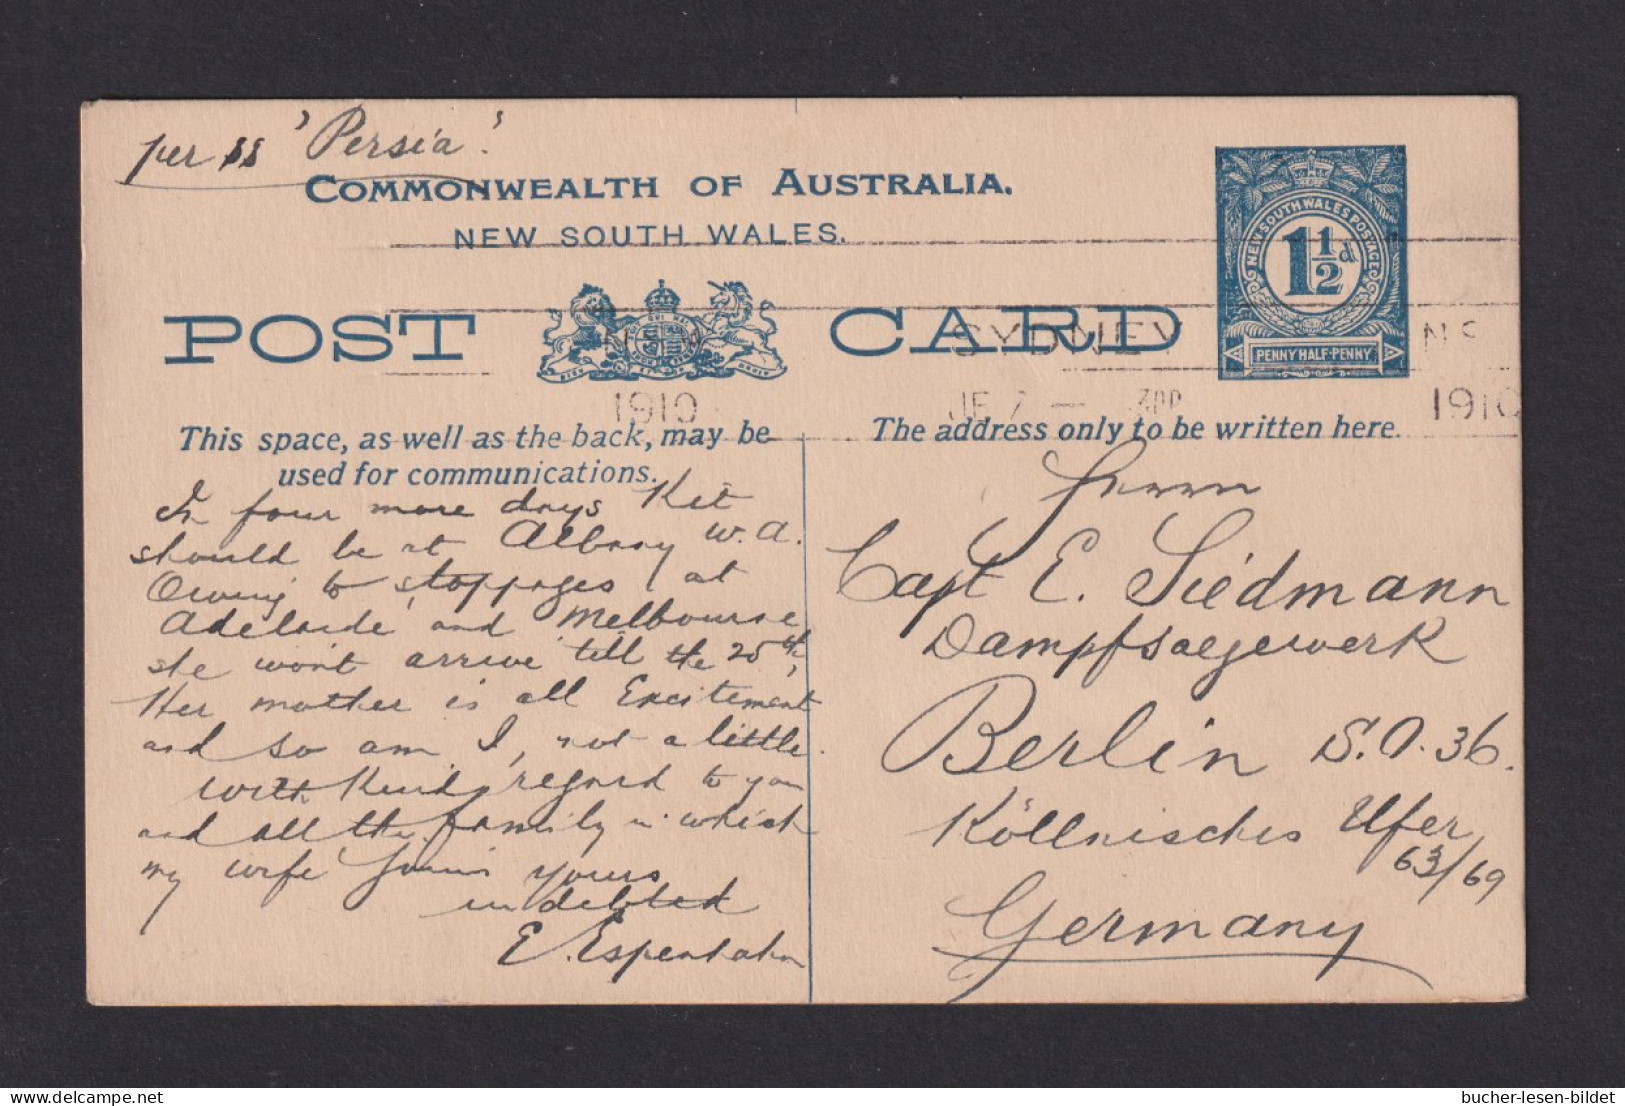 per ss 'Persia'.
COMMONWEALTH OF AUSTRALIA.
NEW SOUTH WALES.
POST CARD
NEW SOUTH WALES POSTAGE
1 1/2 d
PENNY HALF-PENNY
SYDNEY NS
1910 JE 7 — 1910
This space, as well as the back, may be
used for communications.
In four more days Kit
should be at Albany W.A.
Owing to stoppages at
Adelaide and Melbourne
she won't arrive 'till the 25th,
Her mother is all Excitement
and so am I, not a little.
With Kind regard to you
and all the family in which
my wife Joins yours
indebted
E. Espenhahn
The address only to be written here.
Herrn
Capt E. Siedmann
Dampfsaegewerk
Berlin S.O. 36.
Köllnisches Ufer
63/69
Germany
bucher-lesen-bildet